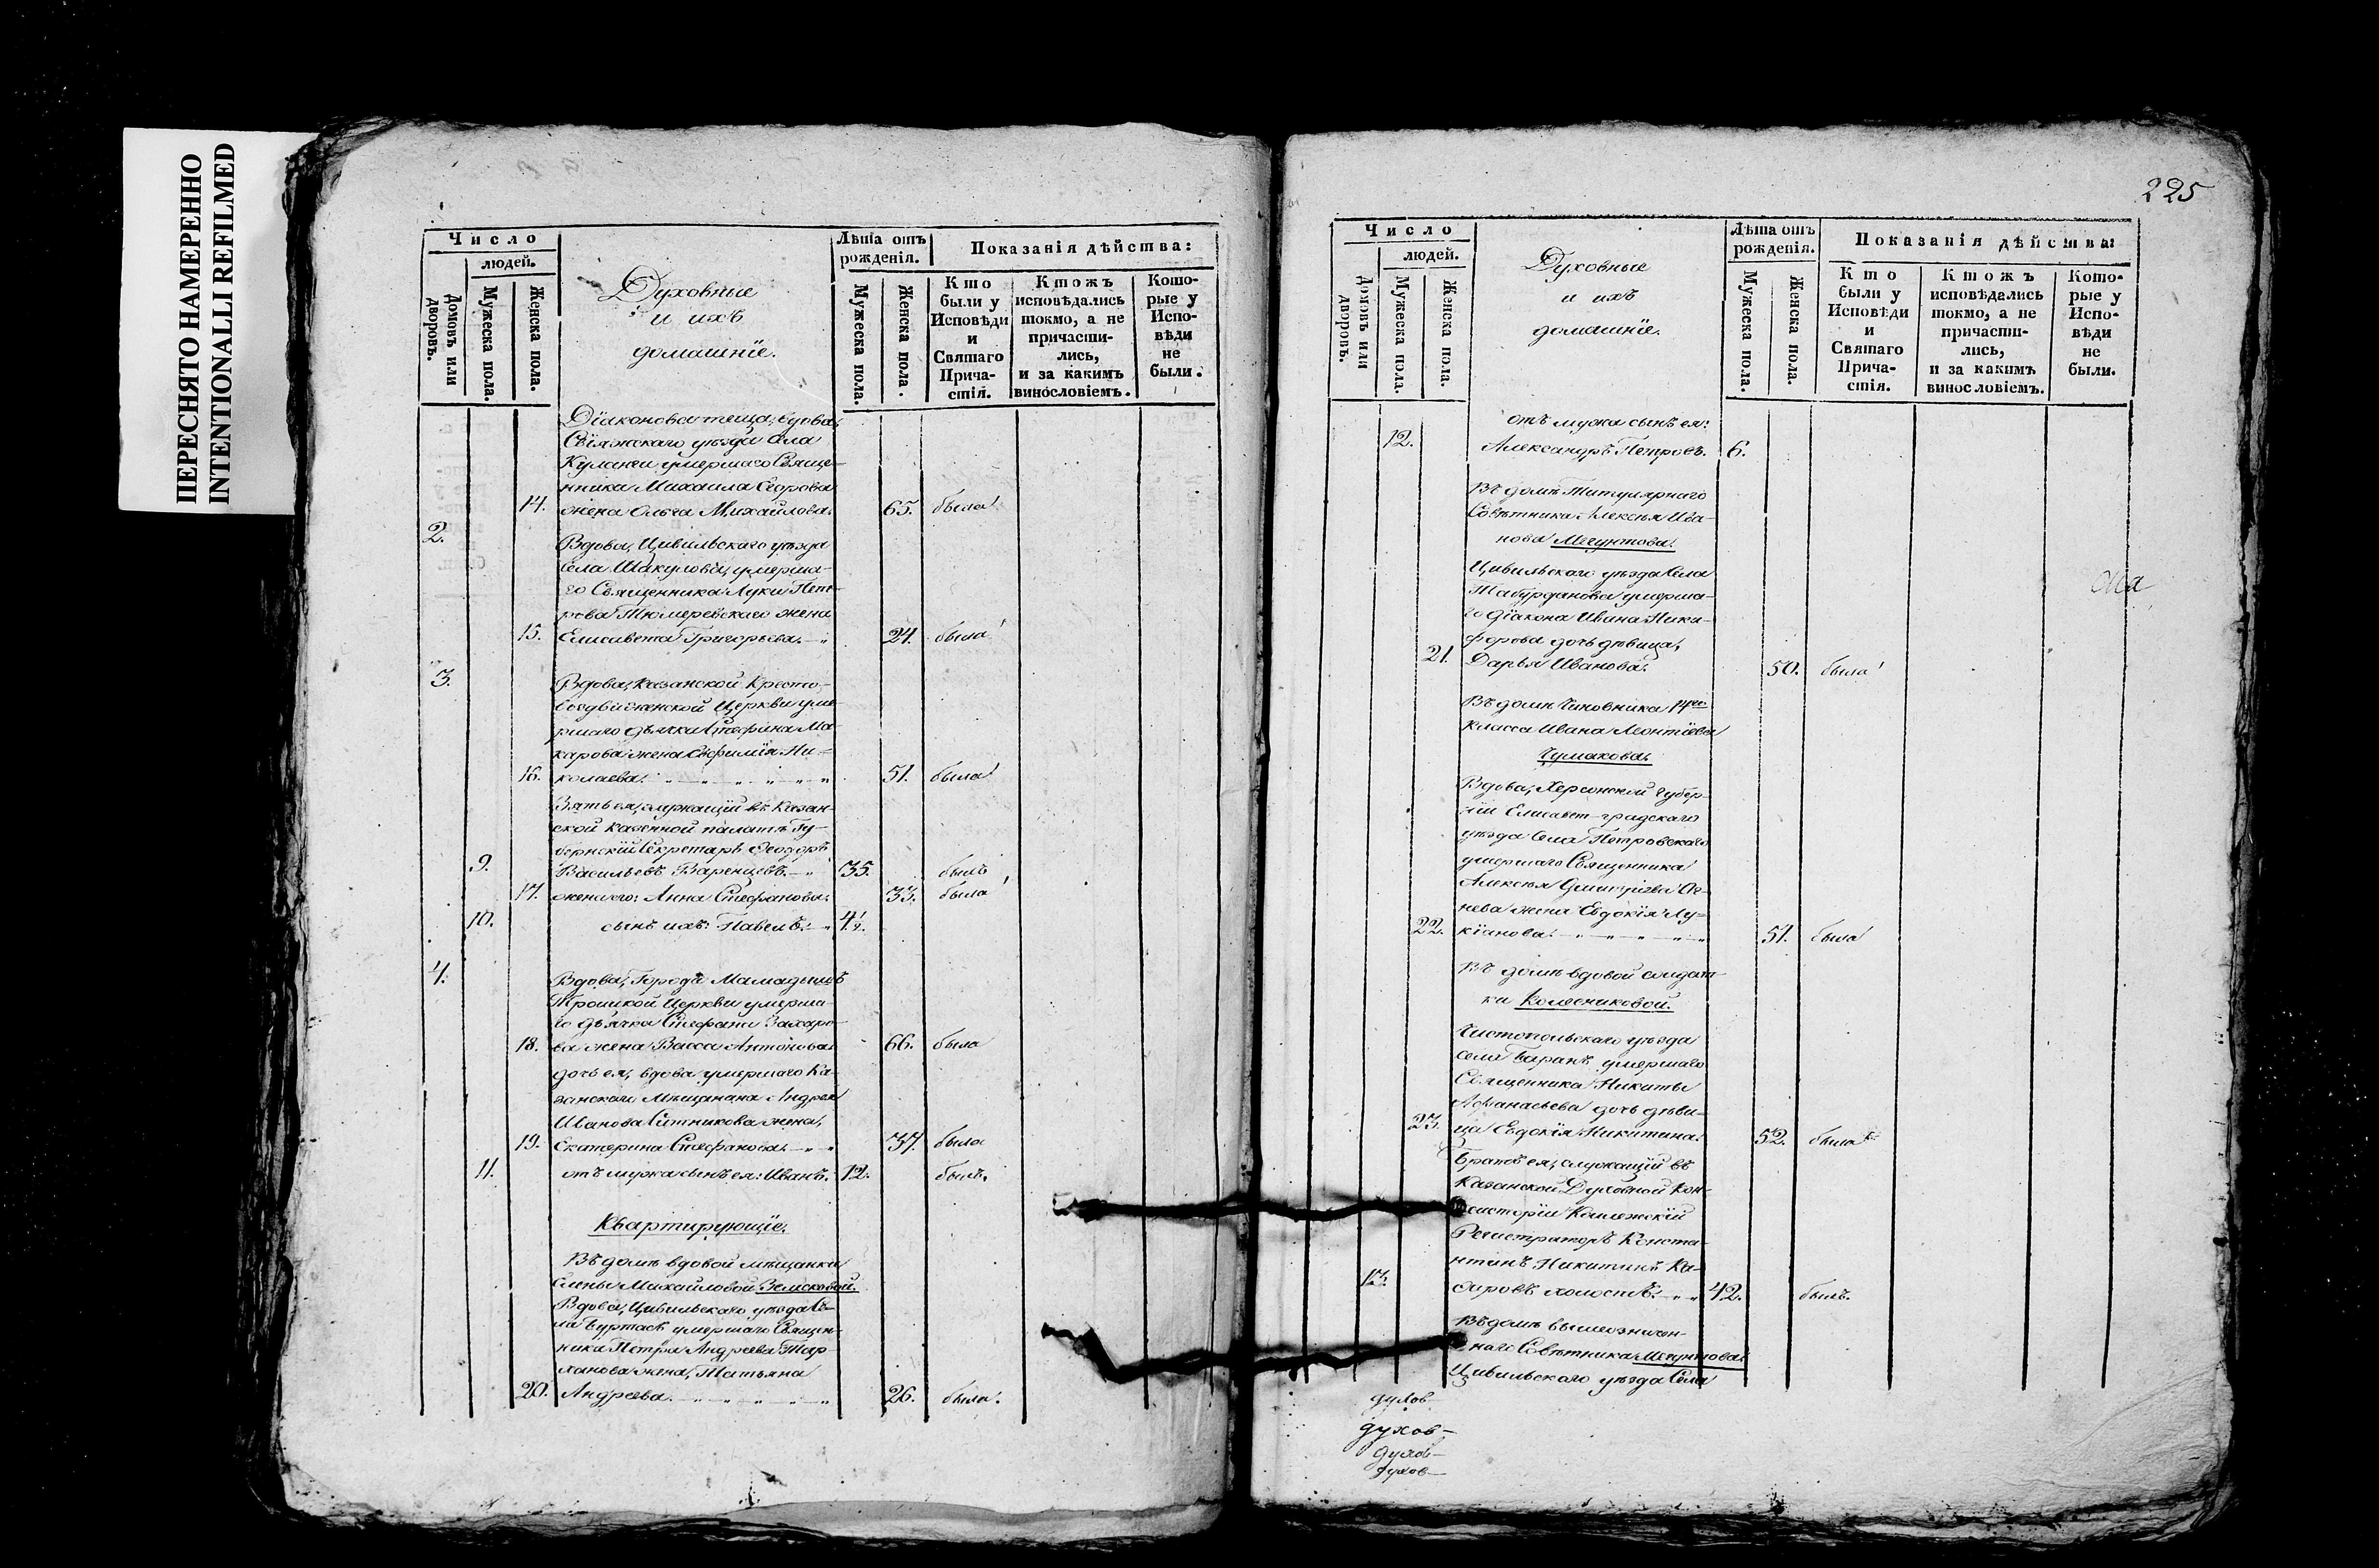 ПЕРЕСНЯТО НАМЕРЕННО
INTENTIONALLI REFILMED
Число
людей.
Домовъ или дворовъ.
Мужеска пола.
Женска пола.
Духовные
и ихъ
домашнїе.
Лѣта отъ
рожденія.
Мужеска пола.
Женска пола.
Показанія дѣйства:
Кто
были у
Исповѣди
и
Святаго
Прича-
стія.
Ктожъ
исповѣдались
токмо, а не
причасти-
лись,
и за какимъ
винословіемъ.
Кото-
рые у
Испо-
вѣди
не
были.
Дїаконова теща, вдова,
Свїяжскаго уѣзда села
умершаго Священ-
ника Михаила
14. жена Ольга Михайлова. 65. была
2.
Вдова, Цивильскаго уѣзда
села умерша-
го Священника Луки Пет-
рова Тюмеревскаго жена
15. Елисавета Григорьева. 24. была
3.
Вдова, Казанской Кресто-
воздвиженской Церкви уме-
ршаго дьячка Стефана Ма-
карова жена Ни-
16. колаева. 51. была
Зять ея, служащїй въ Казан-
ской казенной палатѣ Гу-
бернскїй Секретарь Ѳеодоръ
9. Васильевъ Варенцовъ. 35. былъ
17. жена его: Анна Стефанова. 33. была
10. сынъ ихъ: Павелъ. 4½.
4.
Вдова, Города Мамадышъ
Троицкой Церкви умерша-
го дьячка Стефана Захаро-
18. ва жена Васса Антонова. 66. была
дочь ея, вдова умершаго Ка-
занскаго мѣщанина Андрея
Иванова Ситникова жена,
19. Екатерина Стефанова. 37. была
11. отъ мужа сынъ ея: Иванъ. 12. былъ.
Квартирующїе.
Въ домѣ вдовой мѣщанки
Елены Михайловой Земсковой.
Вдова, Цивильскаго уѣзда Се-
ла Буртасъ умершаго Священ-
ника Петра Андреева Тар-
ханова жена, Татьяна
20. Андреева. 26. была.
225
Число
людей.
Домовъ или дворовъ.
Мужеска пола.
Женска пола.
Духовные
и ихъ
домашнїе.
Лѣта отъ
рожденія.
Мужеска пола.
Женска пола.
Показанія дѣйства:
Кто
были у
Исповѣди
и
Святаго
Прича-
стія.
Ктожъ
исповѣдались
токмо, а не
причасти-
лись,
и за какимъ
винословіемъ.
Кото-
рые у
Испо-
вѣди
не
были.
отъ мужа сынъ ея:
12. Александръ Петровъ. 6.
Въ домѣ Титулярнаго
Совѣтника Алексѣя Ива-
нова
Цивильскаго уѣзда Села
Табурданова умерша-
го Дїакона Ивана Ники-
форова дочь дѣвица,
21. Дарья Иванова. 50. была
Въ домѣ Чиновника 14го
класса Ивана Леонтїева
Чумакова.
Вдова, Херсонской Губер-
нїи Елисавет-градскаго
уѣзда Села Петровскаго
умершаго Священника
Алексѣя Димитрїева Ог-
нева жена Евдокїя Лу-
22. кїанова. 51. была
Въ домѣ вдовой солдат-
ки Колесниковой.
Чистопольскаго уѣзда
села Баранъ умершаго
Священника Никиты
Афанасьева дочь дѣви-
23. ца Евдокїя Никитина. 52. была
Братъ ея, служащїй въ
Казанской Духовной Кон-
систорїи Коллежскїй
Регистраторъ Конста-
нтинъ Никитинъ
13. холостъ. 42. былъ.
Въ домѣ вышеозначен-
наго Совѣтника
Цивильскаго уѣзда Села
духов-
духов-
духов-
духов-